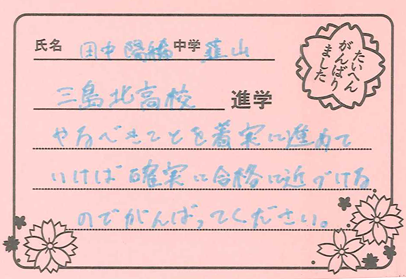 氏名 田中 陽繙 中学 韮山
たいへん
がんばり
ました
三島北高校 進学
やるべきことを着実に進めて
いけば確実に合格に近づける
のでがんばってください。